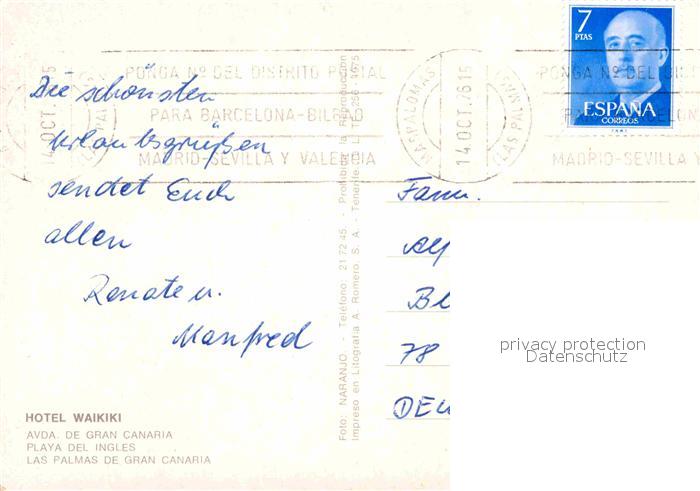 Die schönsten
Urlaubsgrüßen
sendet Euch
allen
Renate u.
Manfred
HOTEL WAIKIKI
AVDA. DE GRAN CANARIA
PLAYA DEL INGLES
LAS PALMAS DE GRAN CANARIA
Foto: NARANJO. - Teléfono: 21 72 45. - Prohibida la Reproducción
Impreso en Litografía A. Romero, S. A. - Tenerife
PONGA Nº DEL DISTRITO POSTAL
PARA BARCELONA-BILBAO
MADRID-SEVILLA Y VALENCIA
MASPALOMAS
14 OCT. 76 15
(LAS PALMAS)
PONGA Nº DEL DIST
BARCELONA
MADRID-SEVILLA Y
7
PTAS
ESPAÑA
CORREOS
Fam.
Alf
Bl
78
DEU
privacy protection
Datenschutz